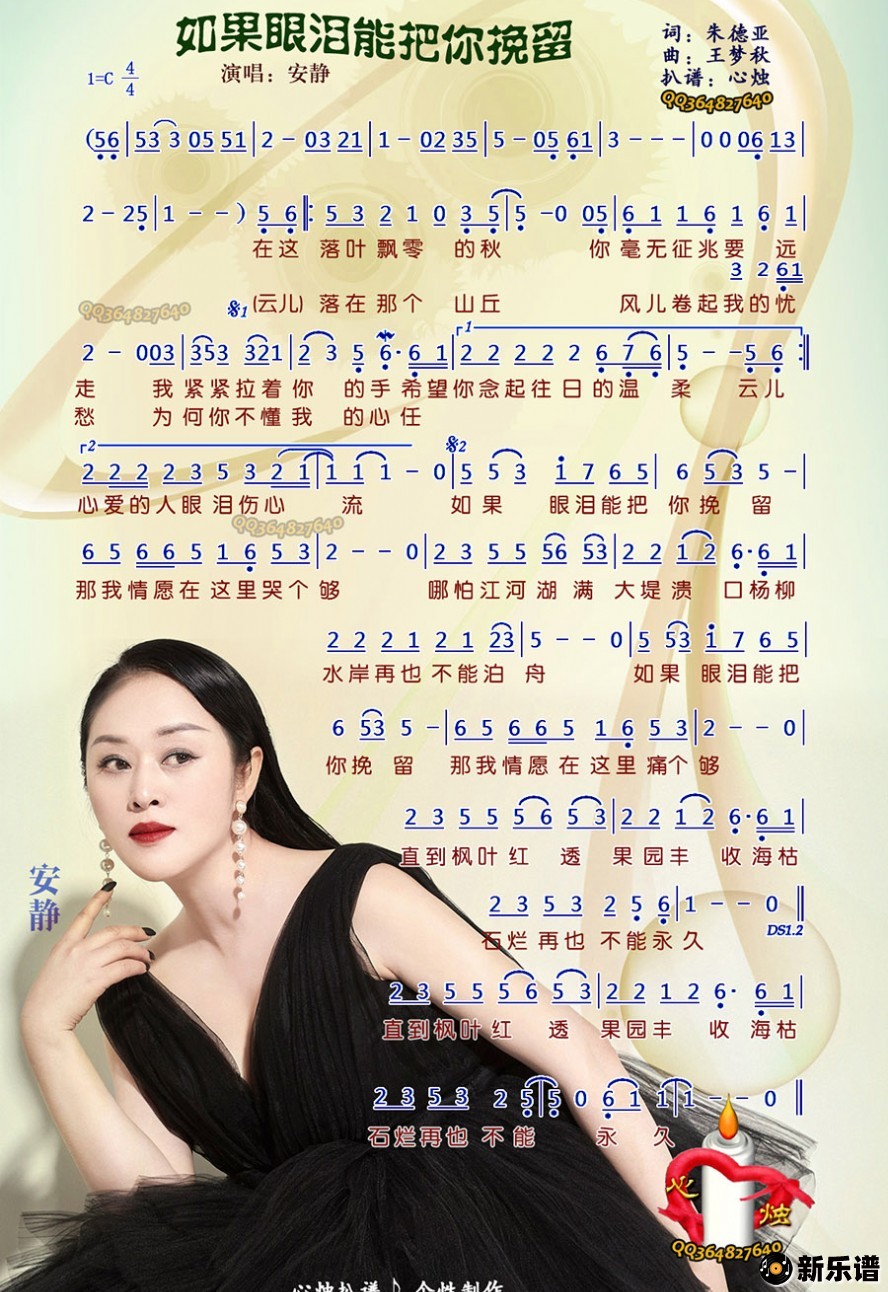 如果眼泪能把你挽留
词：朱德亚
曲：王梦秋
扒谱：心烛
QQ364827640
1=C 4/4
演唱：安静
(56|533 05 51|2 - 03 21|1 - 02 35|5 - 05 61|3 - - -|0 0 06 13|
2 - 25|1 - - ) 5 6‖: 5 3 2 1 0 3 5|5 - 0 05|6 1 1 6 1 6 1|
在这 落叶飘零 的秋 你毫无征兆要 远
3 2 61
QQ364827640
𝄋1 (云儿) 落在那个 山丘 风儿卷起我的忧
1
2 - 003|353 321|2 3 5 6· 6 1|2 2 2 2 2 6 7 6|5 - - 5 6 :‖
走 我紧紧拉着你 的手希望你念起往日的温 柔 云儿
愁 为何你不懂我 的心任
2
𝄋2
2 2 2 2 3 5 3 2 1 1|1 1 1 - 0|5 5 3 1 7 6 5|6 5 3 5 -|
心爱的人眼泪伤心 流 如果 眼泪能把 你挽 留
QQ364827640
6 5 6 6 5 1 6 5 3|2 - - 0|2 3 5 5 56 53|2 2 1 2 6· 6 1|
那我情愿在这里哭个够 哪怕江河湖满 大堤溃 口杨柳
2 2 2 1 2 1 23|5 - - 0|5 53 1 7 6 5|
水岸再也不能泊 舟 如果 眼泪能把
6 53 5 -|6 5 6 6 5 1 6 5 3|2 - - 0|
你挽 留 那我情愿在这里痛个够
2 3 5 5 5 6 5 3|2 2 1 2 6· 6 1|
直到枫叶红 透 果园丰 收海枯
安静
2 3 5 3 2 5 6|1 - - 0‖
DS1.2
石烂再也 不能永久
2 3 5 5 5 6 5 3|2 2 1 2 6· 6 1|
直到枫叶红 透 果园丰 收海枯
2 3 5 3 2 5|5 0 6 1|1 - - 0‖
石烂再也不能 永 久
心烛
QQ364827640
新乐谱
心烛扒谱♪个性制作